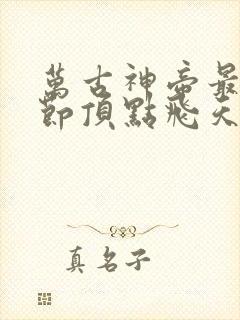 萬古神帝最
節頂點飛天
真名子